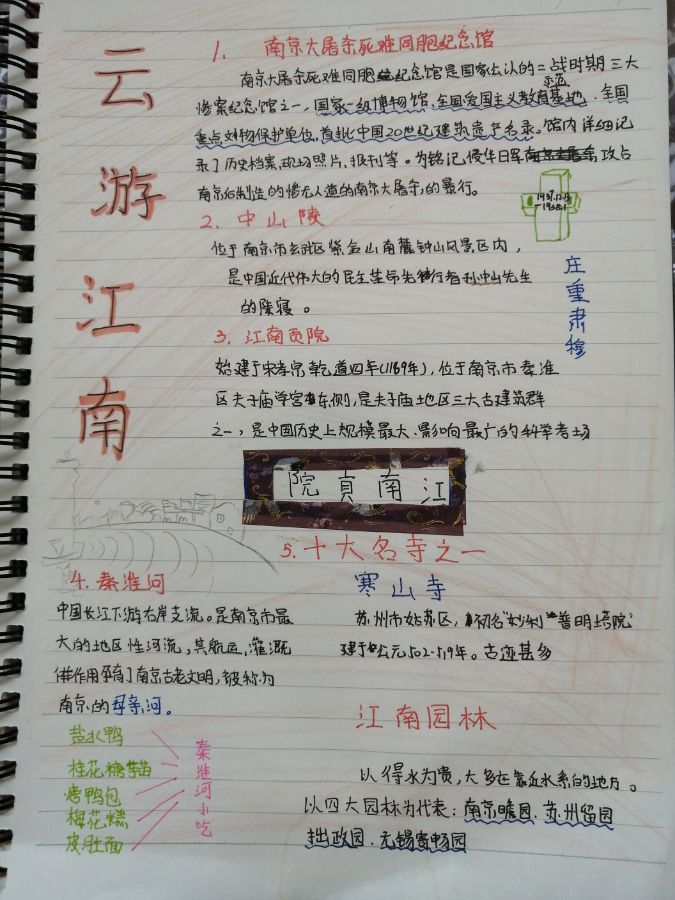 云游江南
1. 南京大屠杀死难同胞纪念馆
南京大屠杀死难同胞纪念馆是国家公认的二战时期三大
惨案纪念馆之一,国家一级博物馆,全国爱国主义教育示范基地、全国
重点文物保护单位,首批中国20世纪建筑遗产名录。馆内详细记
录了历史档案,现场照片,报刊等。为铭记侵华日军攻占
南京后制造的惨无人道的南京大屠杀,的暴行。
1937.12.13
-1938.1
庄重肃穆
2. 中山陵
位于南京市玄武区紫金山南麓钟山风景区内,
是中国近代伟大的民主革命先行者孙中山先生
的陵寝。
3. 江南贡院
始建于宋孝宗乾道四年(1169年),位于南京市秦淮
区夫子庙学宫东侧,是夫子庙地区三大古建筑群
之一,是中国历史上规模最大、影响最广的科举考场
院貢南江
4. 秦淮河
中国长江下游右岸支流。是南京市最
大的地区性河流,其航运,灌溉
作用孕育了南京古老文明,被称为
南京的母亲河。
盐水鸭
桂花糖芋苗
烤鸭包
梅花糕
皮肚面
秦淮河小吃
5. 十大名寺之一
寒山寺
苏州市姑苏区,初名"妙利普明塔院"
建于公元502-519年。古迹甚多
江南园林
以得水为贵,大多在靠近水系的地方。
以四大园林为代表:南京瞻园、苏州留园
拙政园、无锡寄畅园